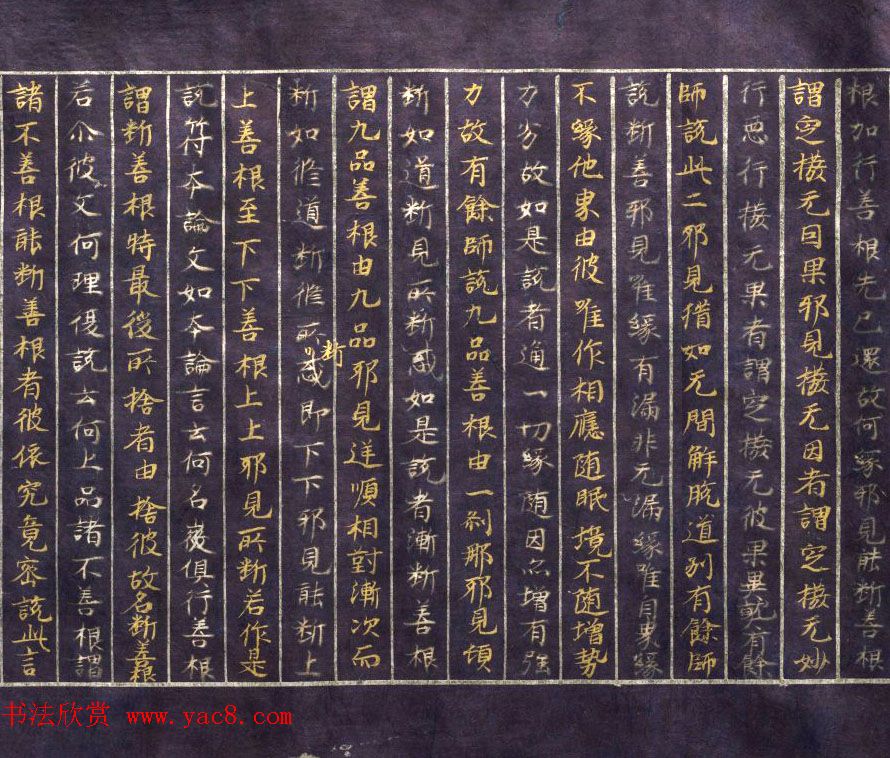 根加行善根先已還故何緣邪見能斷善根
謂定撥无因果邪見撥无因者謂定撥无妙
行惡行撥无果者謂定撥无彼果異熟有餘
師說此二邪見猶如无間解脫道別有餘師
說斷善邪見唯緣有漏非无漏緣唯自界緣
不緣他界由彼唯作相應随眠境不随增勢
力劣故如是說者通一切緣随因亦增有强
力故有餘師說九品善根由一剎那邪見頓
断如道断見所断惑如是說者漸断善根
謂九品善根由九品邪見逆順相對漸次而
断如脩道断脩所断惑即下下邪見能断上
上善根至下下善根上上邪見所断若作是
說符本論文如本論言云何名微俱行善根
謂断善根時最後所捨者由捨彼故名断善根
若尒彼文何理復說云何上品諸不善根謂
諸不善根能断善根者彼依究竟密說此言
书法欣赏 www.yac8.com